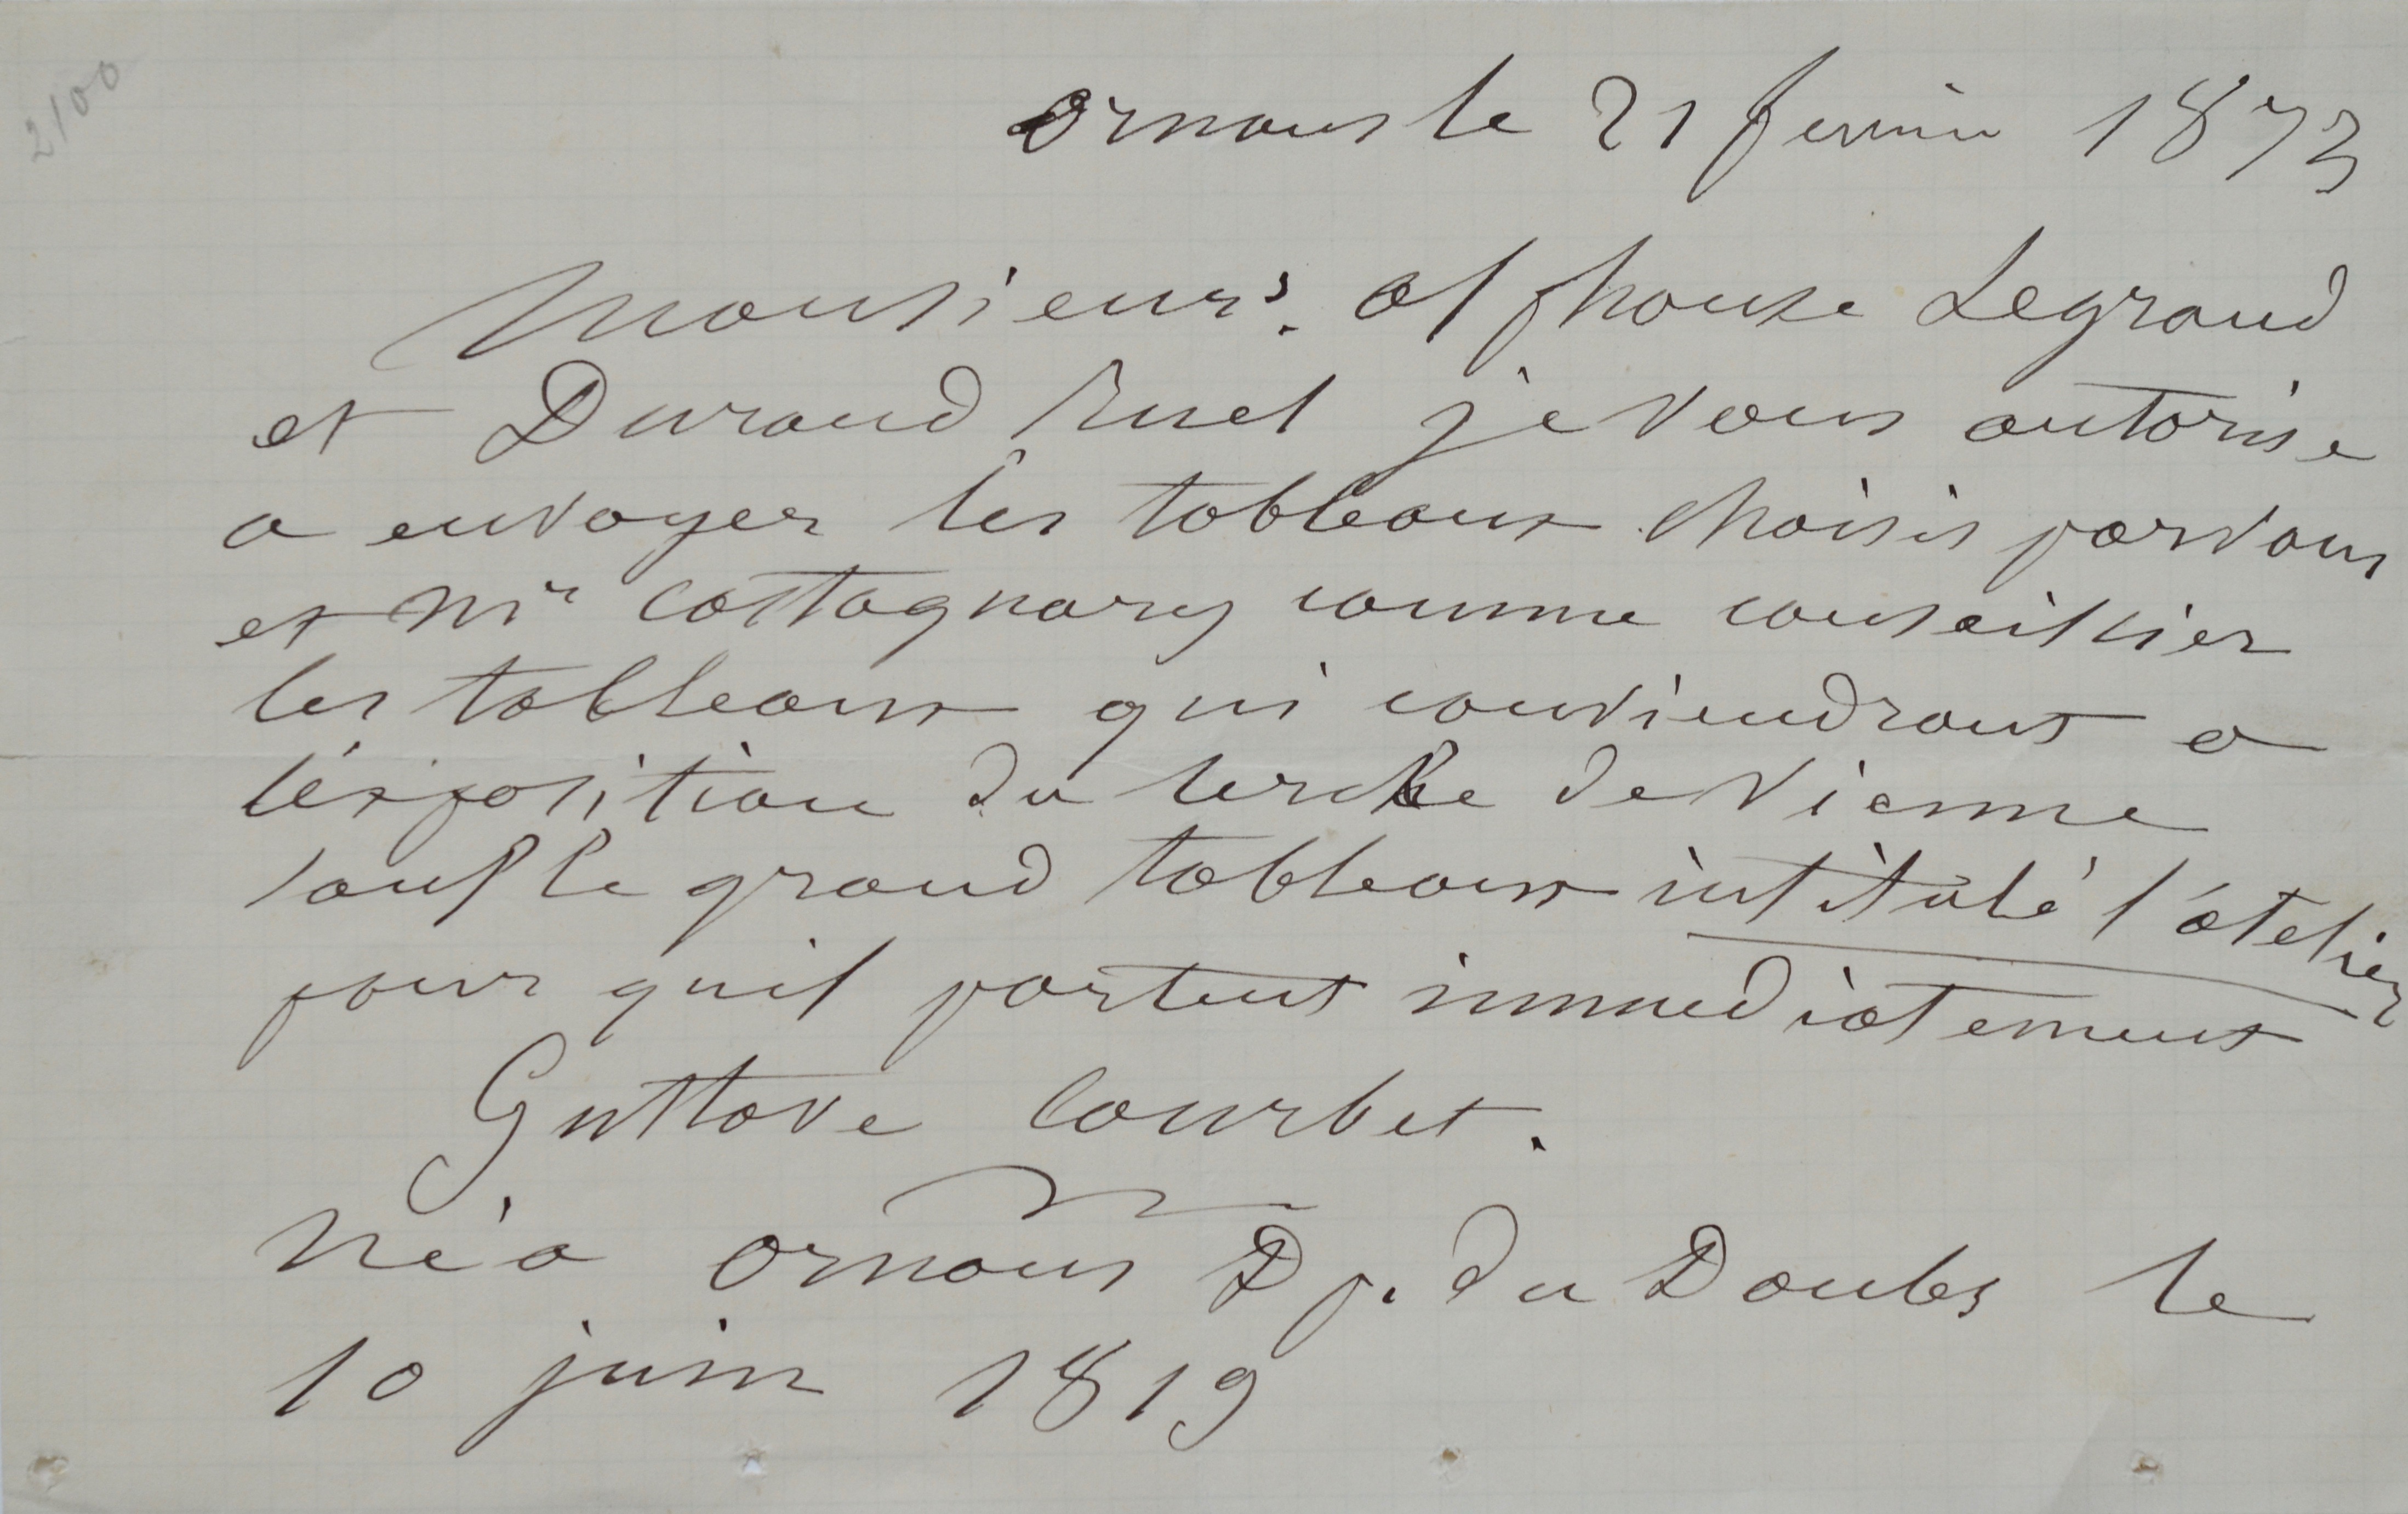 2100
Ornans le 21 fevrier 1873
Monsieurs. alphonse Legrand
et Durand Ruel je vous autorise
a envoyer les tableaux choisis par vous
et Mr Castagnary comme conseillier
les tableaux qui conviendront a
l'éxposition du cercle de Vienne
sauf le grand tableaux intitulé l'atelier
pour quil partent immediatement
Gustave Courbet.
Né a Ornans Dp. du Doubs le
10 juin 1819